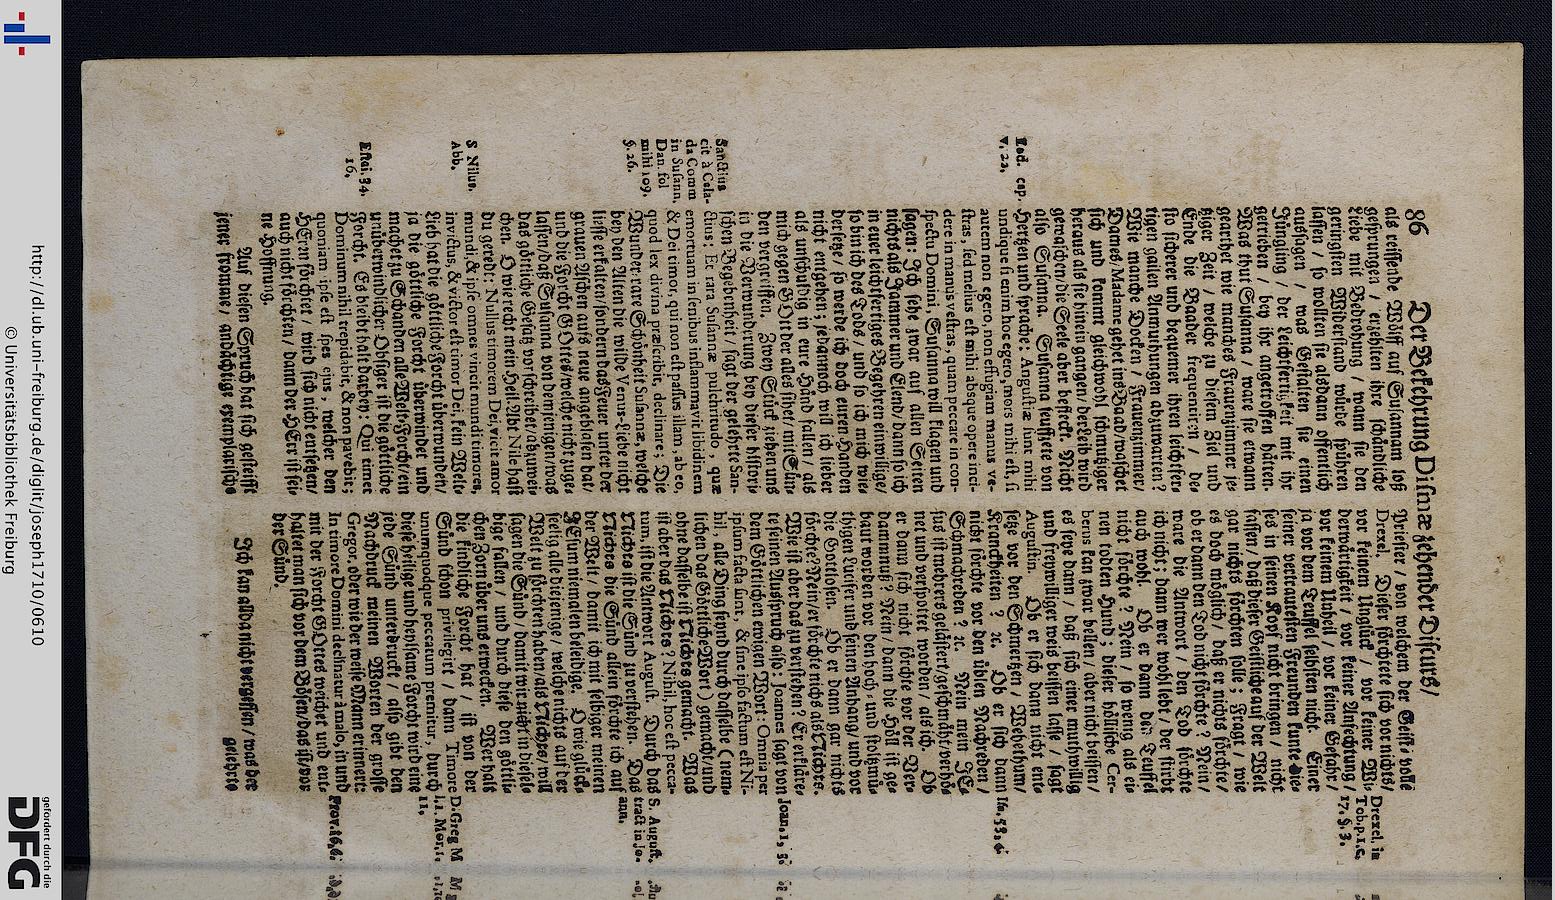 86
Der Bekehrung Disinæ zehender Discurs/
als reissende Wölff auf Susannam loß
gesprungen / erzehlten ihre schändliche
Liebe mit Bedrohung / wann sie den
geringsten Widerstand wurde spühren
lassen / so wollten sie alsdann öffentlich
aussagen / was Gestalten sie einen
Jüngling / der Leichtfertigkeit mit ihr
getrieben / bey ihr angetroffen hätten.
Was thut Susanna / ware sie etwann
gearthet wie manches Frauenzimmer je-
tziger Zeit / welche zu diesem Ziel und
Ende die Baader frequentiren / des-
sto sicherer und bequemer ihren leichtfer-
tigen gailen Anmuthungen abzuwarten?
Wie manche Docken / Frauenzimmer/
Dames, Madame gehet ins Baad/waschet
sich und kommt gleichwohl schmutziger
heraus als sie hinein gangen/ der Leib wird
gewaschen/die Seele aber befleckt. Nicht
also Susanna. Susanna seuffzete von
Hertzen und sprache: Angustiæ sunt mihi
undique si enim hoc egero, mors mihi est, si
autem non egero, non effugiam manus ve-
stras, sed melius est mihi absque opere inci-
dere in manus vestras, quam peccare in con-
spectu Domini, Susanna will klagen und
sagen: Ich sehe zwar auf allen Seiten
nichts als Jammer und Elend/ dann so ich
in euer leichtfertiges Begehren einwillige/
so bin ich des Tods / und so ich mich wie-
dersetze/ so werde ich doch euren Handen
nicht entgehen; jedannoch will ich lieber
als unschuldig in eure Händ fallen/ als
mich gegen GOtt der alles sihet/ mit Sün-
den vergreiffen. Zwey Stück ziehen uns
in die Verwundrung bey dieser histori-
schen Begebenheit / sagt der gelehrte San-
ctius; Et rara Susannæ pulchritudo, quæ
emortuam in senibus inflammavit libidinem,
& Dei timor, qui non est passus illam, ab eo,
quod lex divina præscribit, declinare; Die
Wunder-rare Schönheit Susannæ, welche
bey den Alten die wilde Venus-Liebe nicht
liesse erkalten/sondern das Feuer unter der
grauen Aschen aufs neue angeblasen hat/
und die Forcht GOttes/welche nicht zuge-
lassen/daß Susanna von demjenigen/was
das göttliche Gesatz vorschreibet/abzuwei-
chen. O wie recht mein Heil. Abt Nile hast
du geredt: Nullus timorem Dei, vicit amor
mundi, & ipse omnes vincit mundi timores,
invictus, & victor est timor Dei, kein Welt-
Lieb hat die göttliche Forcht überwunden/
ja die göttliche Forcht überwindet und
machet zu Schanden alle Welt-Forcht/ein
unüberwindlicher Obsiger ist die göttliche
Forcht. Es bleibt halt darbey: Qui timet
Dominum nihil trepidabit, & non pavebit;
quoniam ipse est spes ejus, welcher den
HErrn förchtet / wird sich nicht entsetzen/
auch nicht förchten/ dann der HErr ist sei-
ne Hoffnung.
Auf diesen Spruch hat sich gesteifft
jener fromme / andächtige exemplarische
Exod. cap.
v. 22.
Sanctius
cit à Cela-
da Comm
in Susann.
Dan. fol
mihi 109.
§. 26.
S Nilus,
Abb.
Eccli. 34.
16.
Priester / von welchem der Geist-volle
Drexel. Dieser förchtete sich vor nichts/
vor keinem Unglück / vor keiner Wi-
derwärtigkeit / vor keiner Anfechtung /
vor keinem Unheil / vor keiner Gefahr/
ja vor dem Teuffel selbsten nicht. Einer
seiner vertrautesten Freunden kunte die-
ses in seinen Kopf nicht bringen / nicht
fassen / daß dieser Geistliche auf der Welt
gar nichts förchten solle; Fragt / wie
es doch möglich / daß er nichts förchte/
ob er dann den Tod nicht förchte? Nein/
ware die Antwort / den Tod förchte
ich nicht; dann wer wohl lebt / der stirbt
auch wohl. Ob er dann den Teuffel
nicht förchte? Nein / so wenig als ei-
nen todten Hund; dieser höllische Cer-
berus kan zwar bellen / aber nicht beissen/
es seye dann / daß sich einer muthwillig
und freywilliger weis beissen lasse / sagt
Augustin. Ob er sich dann nicht ent-
setze vor den Schmertzen / Wehethum/
Kranckheiten? ꝛc. Ob er sich dann
nicht förchte vor den üblen Nachreden/
Schmachreden? ꝛc. Nein mein JE-
sus ist mehrers gelästert/geschmächt/verhöh-
net und verspottet worden / als ich. Ob
er dann sich nicht förchte vor der Ver-
dammnuß? Nein / dann die Höll ist ge-
baut worden vor den hoch- und stoltzmü-
thigen Lucifer und seinen Anhang/ und vor
die Gottlosen. Ob er dann gar nichts
förchte? Nein/er förchte nichts als Nichts.
Wie ist aber das zu verstehen? Er erkläre-
te seinen Ausspruch also: Joannes sagt von
dem Göttlichen ewigen Wort: Omnia per
ipsum facta sunt, & sine ipso factum est Ni-
hil, alle Ding seynd durch dasselbe (nem-
lichen das Göttliche Wort) gemacht/und
ohne dasselbe ist Nichts gemacht. Was
ist aber das Nichts? Nihil, hoc est pecca-
tum, ist die Antwort August. Durch das
Nichts ist die Sünd zu verstehen. Das
Nichts die Sünd allein förchte ich auf
der Welt / damit ich mit selbiger meinen
JEsum niemalen beleidige. O wie glück-
seelig alle diejenige / welche nichts auf der
Welt zu förchten haben/als Nichts/will
sagen die Sünd / damit wir nicht in dieselbige
fallen / und durch diese den göttli-
chen Zorn über uns erwecken. Wer halt
die kindliche Forcht hat / ist von der
Sünd schon privilegirt / dann Timore
unumquodque peccatum premitur, durch
diese heilige und heylsame Forcht wird eine
jede Sünd unterdruckt / also gibt den
Nachdruck meinen Worten der grosse
Gregor. oder wie der weise Mann erinnert:
In timore Domini declinatur à malo, in und
mit der Forcht GOttes weichet und ent-
haltet man sich vor dem Bösen/das ist/vor
der Sünd.
Ich kan allda nicht vergessen / was der
gelehrte
Drexel. in
Tob. p. 1. c.
17. §. 3.
Isa. 53.
Joan. 1.
S. August.
tract in Jo-
ann.
D. Greg M
l. 1. Mor.
11.
Prov. 16, 6.
http://dl.ub.uni-freiburg.de/diglit/joseph1710/0610
© Universitätsbibliothek Freiburg
gefördert durch die
DFG